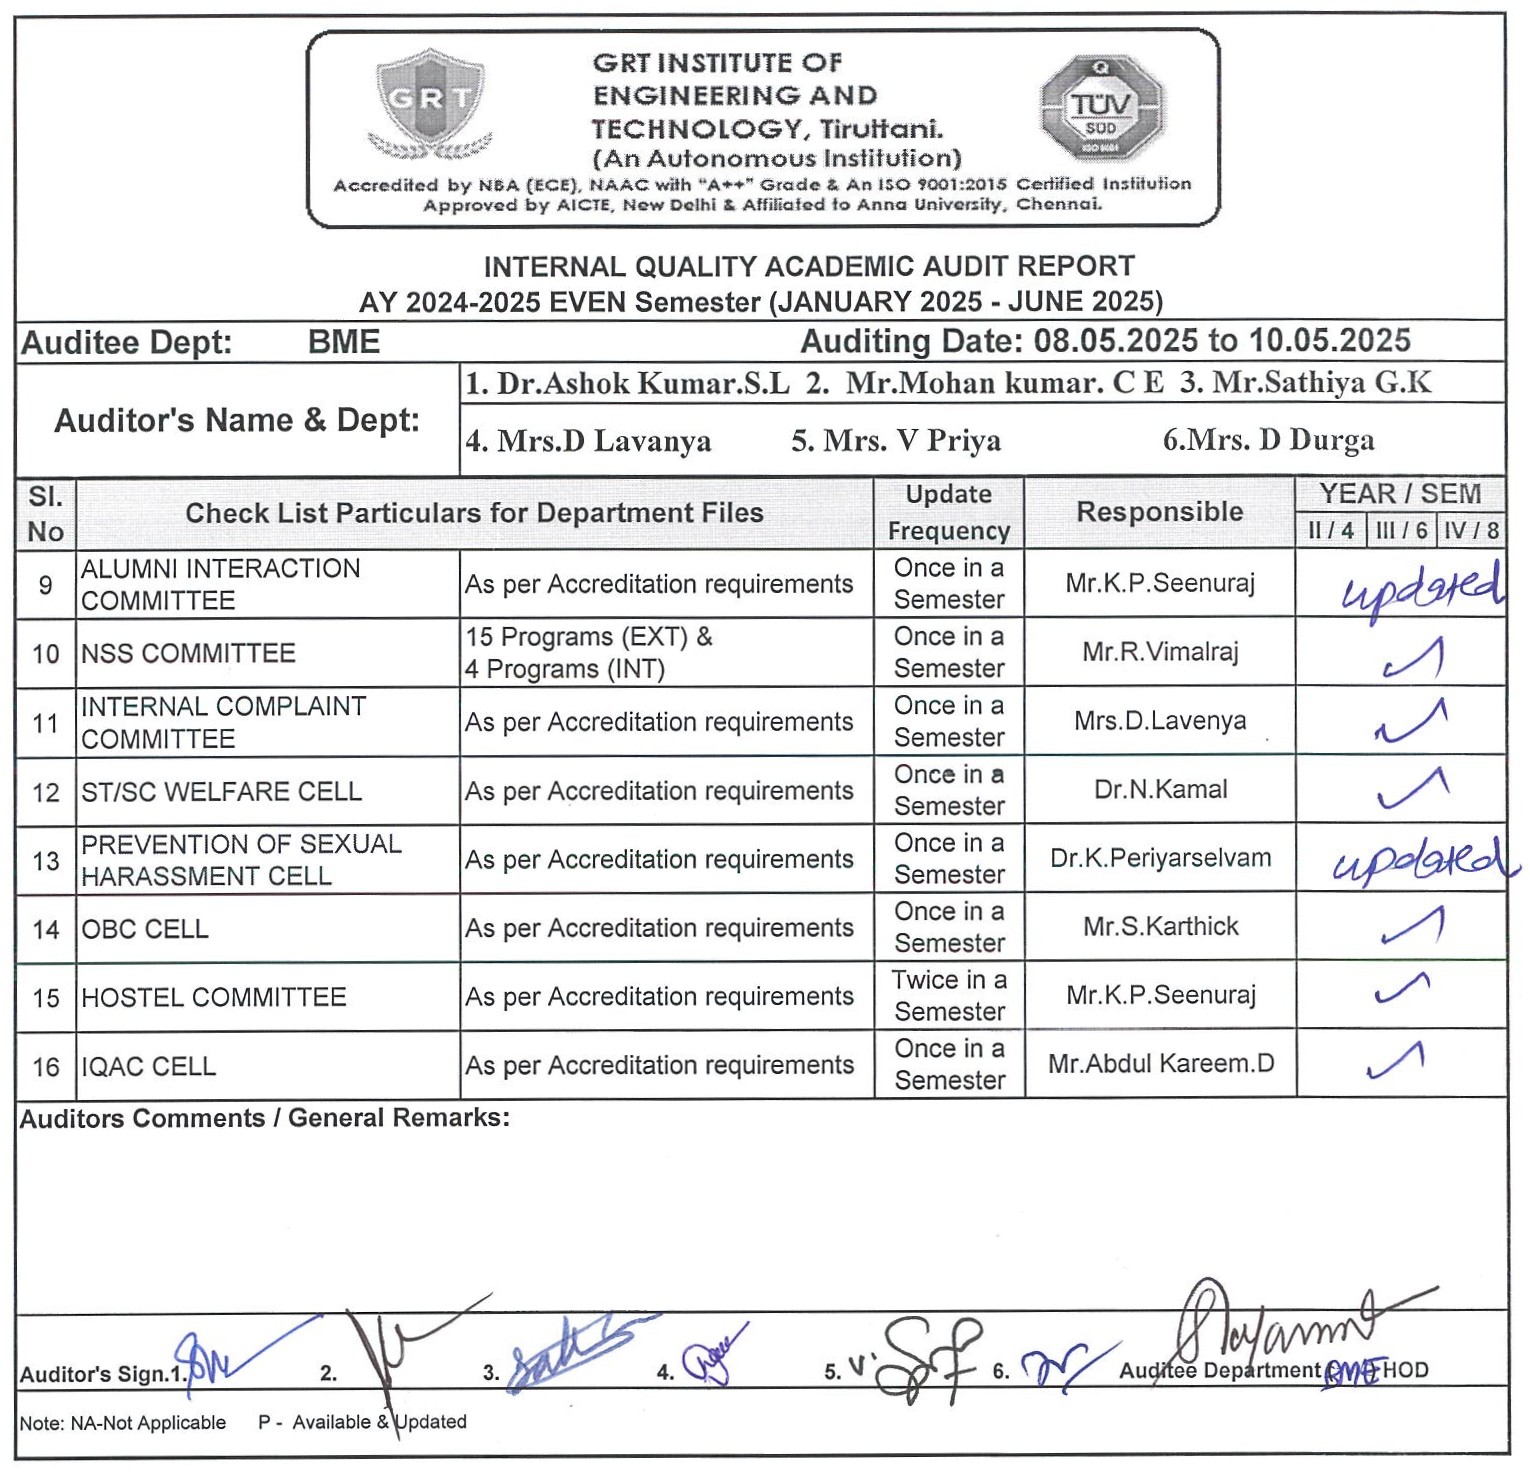 GRT
GRT INSTITUTE OF
ENGINEERING AND
TECHNOLOGY, Tiruttani.
(An Autonomous Institution)
Q
TÜV
SÜD
ISO 9001
Accredited by NBA (ECE), NAAC with "A++" Grade & An ISO 9001:2015 Certified Institution
Approved by AICTE, New Delhi & Affiliated to Anna University, Chennai.
INTERNAL QUALITY ACADEMIC AUDIT REPORT
AY 2024-2025 EVEN Semester (JANUARY 2025 - JUNE 2025)
Auditee Dept: BME Auditing Date: 08.05.2025 to 10.05.2025
Auditor's Name & Dept:
1. Dr.Ashok Kumar.S.L 2. Mr.Mohan kumar. C E 3. Mr.Sathiya G.K
4. Mrs.D Lavanya 5. Mrs. V Priya 6.Mrs. D Durga
Sl. No Check List Particulars for Department Files Update Frequency Responsible YEAR / SEM
II / 4 III / 6 IV / 8
9 ALUMNI INTERACTION COMMITTEE As per Accreditation requirements Once in a Semester Mr.K.P.Seenuraj updated
10 NSS COMMITTEE 15 Programs (EXT) & 4 Programs (INT) Once in a Semester Mr.R.Vimalraj ✓
11 INTERNAL COMPLAINT COMMITTEE As per Accreditation requirements Once in a Semester Mrs.D.Lavenya ✓
12 ST/SC WELFARE CELL As per Accreditation requirements Once in a Semester Dr.N.Kamal ✓
13 PREVENTION OF SEXUAL HARASSMENT CELL As per Accreditation requirements Once in a Semester Dr.K.Periyarselvam updated
14 OBC CELL As per Accreditation requirements Once in a Semester Mr.S.Karthick ✓
15 HOSTEL COMMITTEE As per Accreditation requirements Twice in a Semester Mr.K.P.Seenuraj ✓
16 IQAC CELL As per Accreditation requirements Once in a Semester Mr.Abdul Kareem.D ✓
Auditors Comments / General Remarks:
Auditor's Sign.1. 2. 3. 4. 5. 6. Auditee Department BME HOD
Note: NA-Not Applicable P - Available & Updated